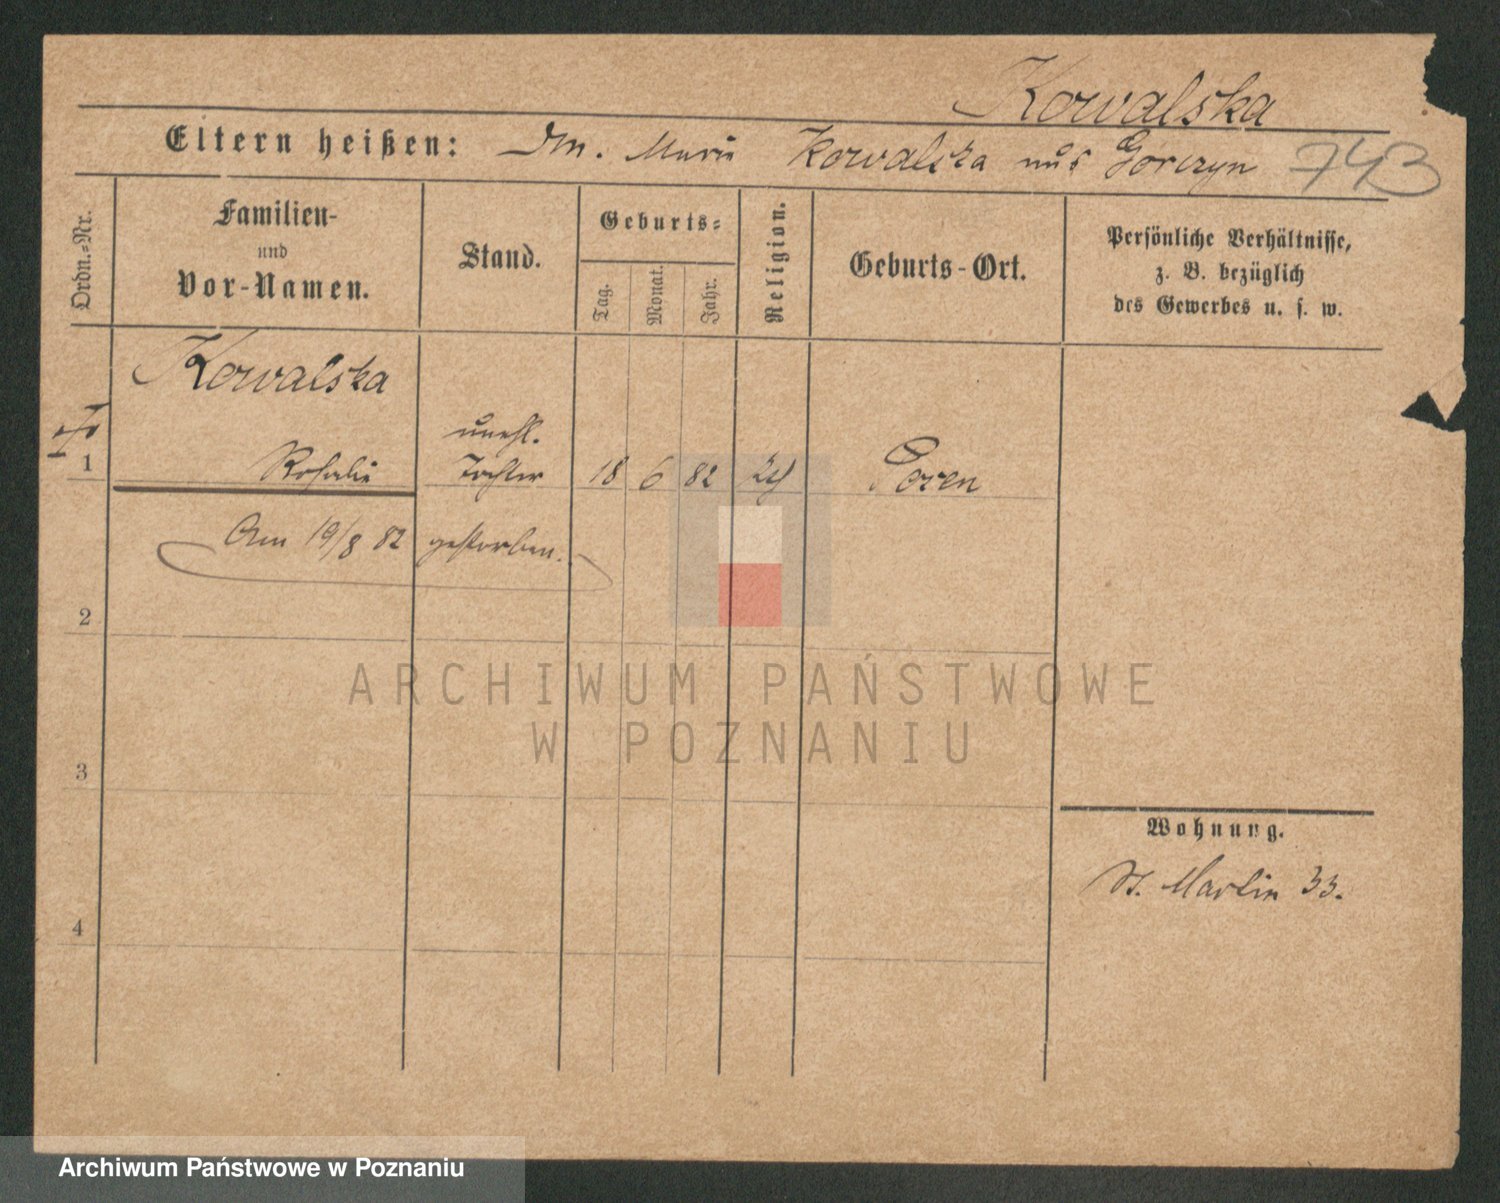 Kowalska
Eltern heißen: Marie Kowalska aus Gorczyn 743
Ordn.-Nr.
Familien-
und
Vor-Namen.
Stand.
Geburts-
Tag.
Monat.
Jahr.
Religion.
Geburts-Ort.
Persönliche Verhältnisse,
z. B. bezüglich
des Gewerbes u. s. w.
Kowalska
unehl.
1 Rosalie Tochter 18 6 82 Posen
Am 19/8 82 gestorben.
2
3
4
Wohnung.
St. Martin 33.
ARCHIWUM PAŃSTWOWE
W POZNANIU
Archiwum Państwowe w Poznaniu